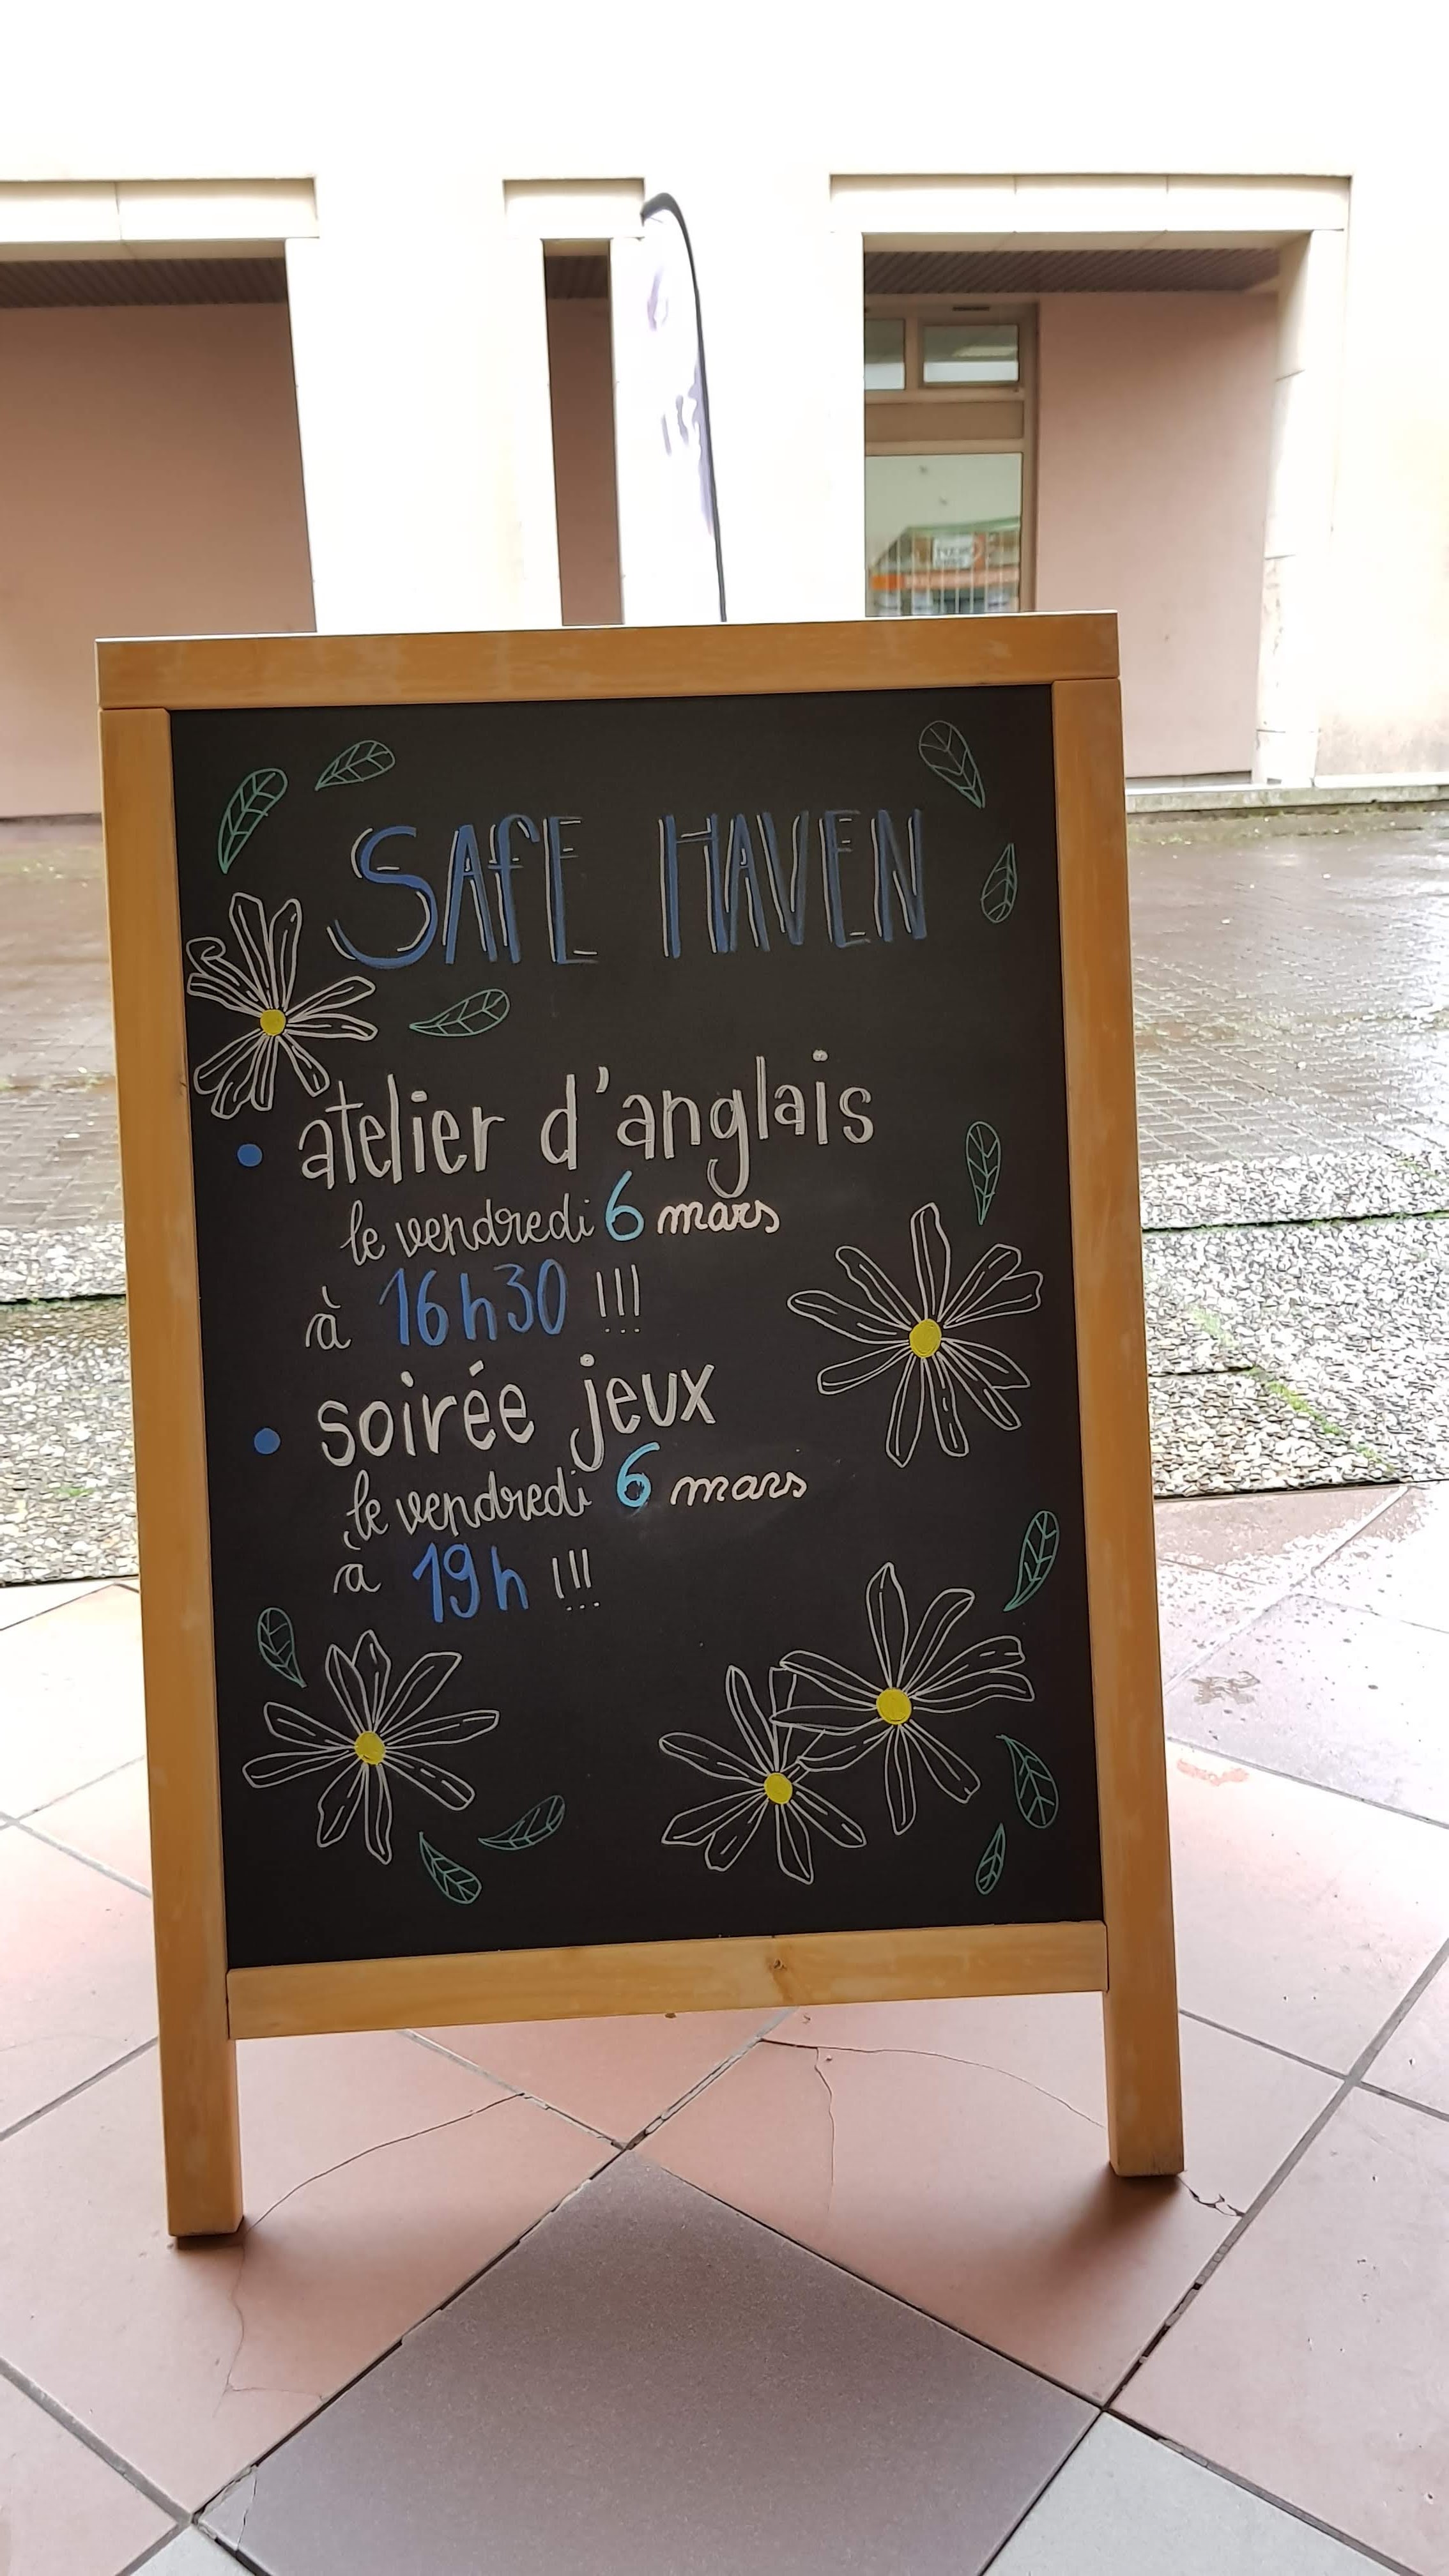 SAFE HAVEN
• atelier d'anglais
le vendredi 6 mars
à 16h30 !!!
• soirée jeux
le vendredi 6 mars
à 19h !!!